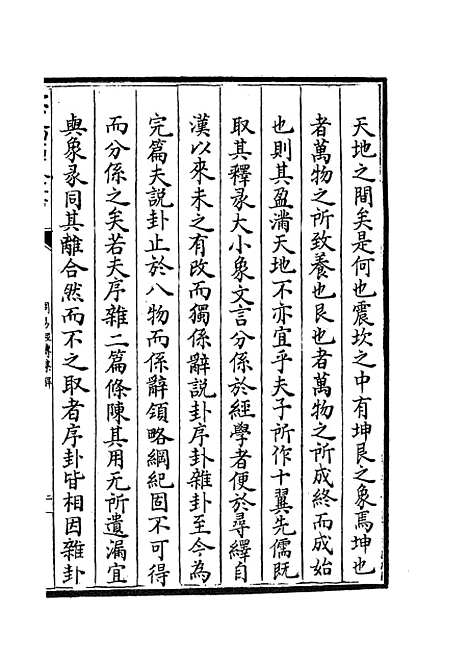 天地之間矣是何也震坎之中有坤艮之象焉坤也
者萬物之所致養也艮也者萬物之所成終而成始
也則其盈滿天地不亦宜乎夫子所作十翼先儒既
取其釋彖大小象文言分係於經學者便於尋繹自
漢以來未之有改而獨係辭說卦序卦雜卦至今為
完篇夫說卦止於八物而係辭領略綱紀固不可得
而分係之矣若夫序雜二篇條陳其用无所遺漏宜
與象彖同其離合然而不之取者序卦皆相因雜卦
周易經傳集解
二